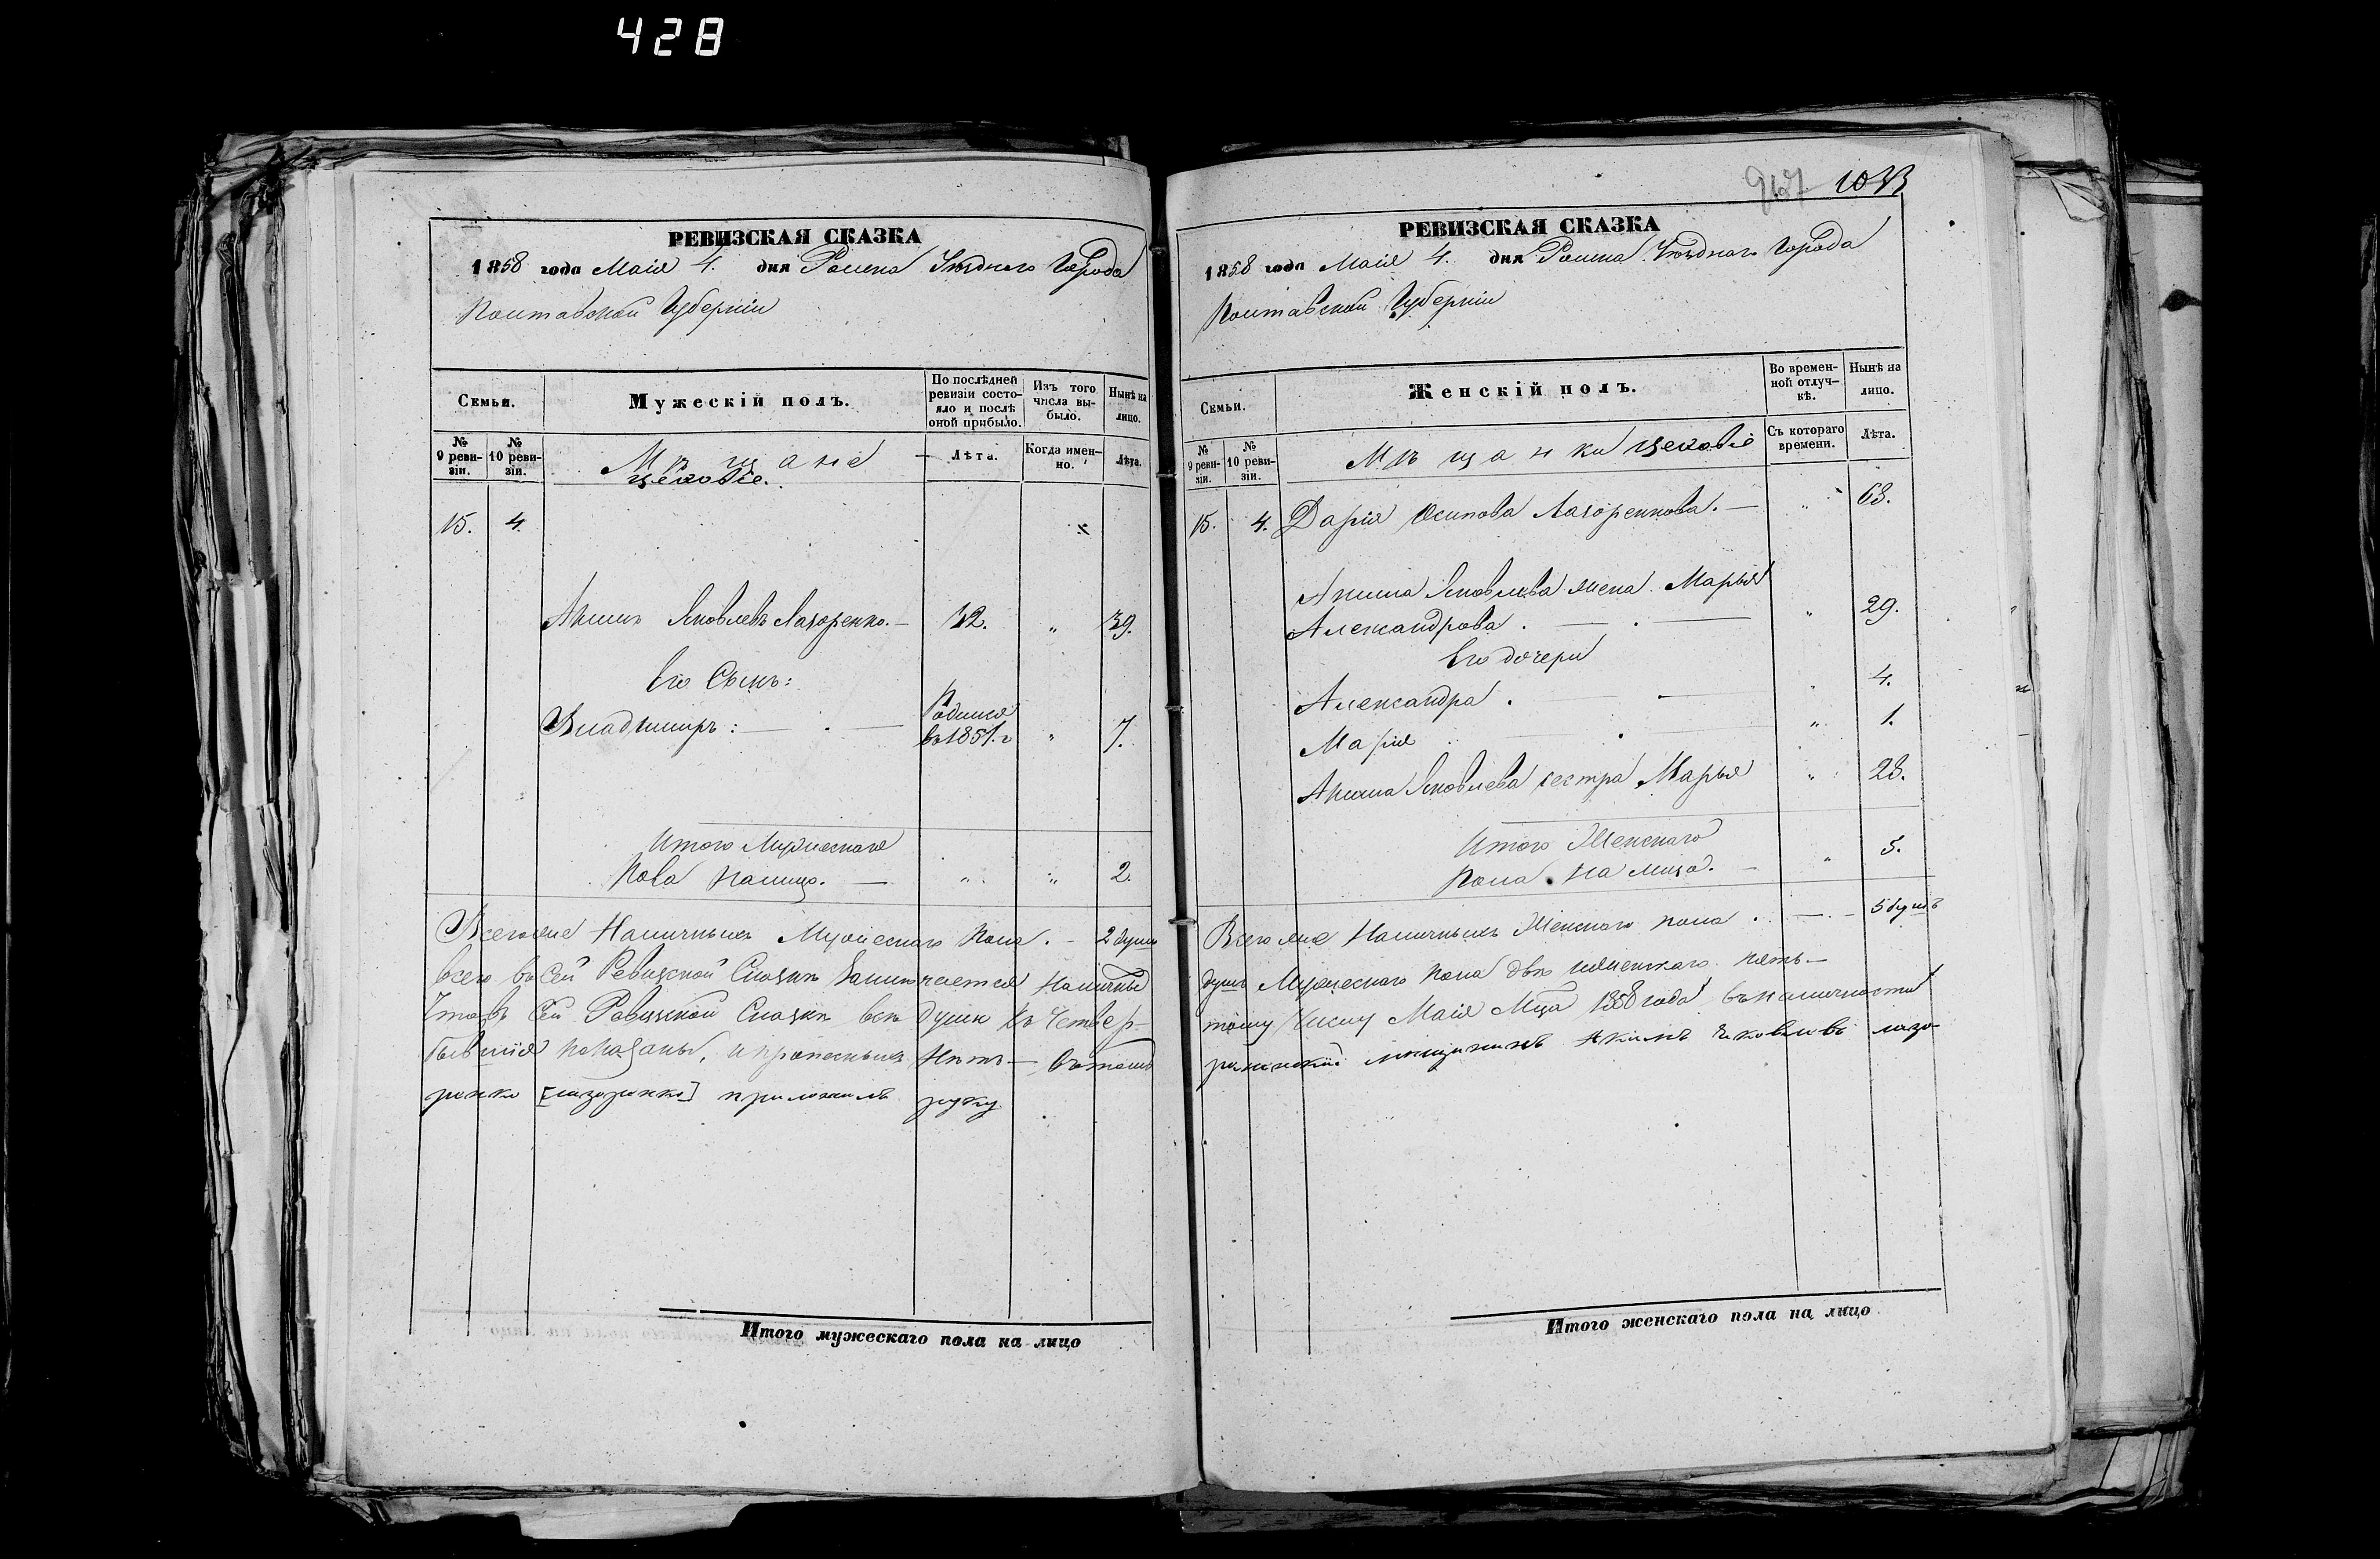 428
РЕВИЗСКАЯ СКАЗКА
1858 года Маія 4. дня Ромна Уѣзднаго Города
Полтавской Губерніи
Семьи.
Мужескій полъ.
По послѣдней ревизіи состояло и послѣ оной прибыло.
Изъ того числа выбыло.
Нынѣ на лицо.
№ 9 ревизіи.
№ 10 ревизіи.
Мѣщане
цеховіе.
Лѣта.
Когда именно.
Лѣта.
15. 4.
Акимъ Яковлевъ Лазоренко. — 32. „ 39.
Его Сынъ:
Владимиръ: — Родился въ 1851. г „ 7.
Итого Мужескаго
Пола налицо. — „ „ 2.
Всего же Наличныхъ Мужескаго Пола. - 2 душъ
всего въ Сей Ревизской Сказкѣ Заключается Наличныхъ
Что въ Сей Ревизской Сказкѣ всѣ души къ Четвер-
бывшія показаны, и прописныхъ Нѣтъ — Въ томъ
ренко [лазоренко] приложилъ руку
Итого мужескаго пола на лицо
967 1033
РЕВИЗСКАЯ СКАЗКА
1858 года Маія 4. дня Ромна Уѣзднаго Города
Полтавской Губерніи
Семьи.
Женскій полъ.
Во временной отлучкѣ.
Нынѣ на лицо.
№ 9 ревизіи.
№ 10 ревизіи.
Мѣщанки цеховіе
Съ котораго времени.
Лѣта.
15. 4. Дарія Осипова Лазоренкова. — „ 63.
Акима Яковлева жена Марья
Александрова. — „ 29.
Его дочери
Александра. — 4.
Марія „ 1.
Акима Яковлева сестра Марья „ 28.
Итого Женскаго
Пола на лицо. — „ 5.
Всего же Наличныхъ Женскаго пола. — 5 душъ
душъ Мужескаго пола двѣ женскаго пять —
тому Числу Маія Мца 1858 года въ наличности
роменскій мещанинъ Акимъ Яковлевъ лазо-
Итого женскаго пола на лицо